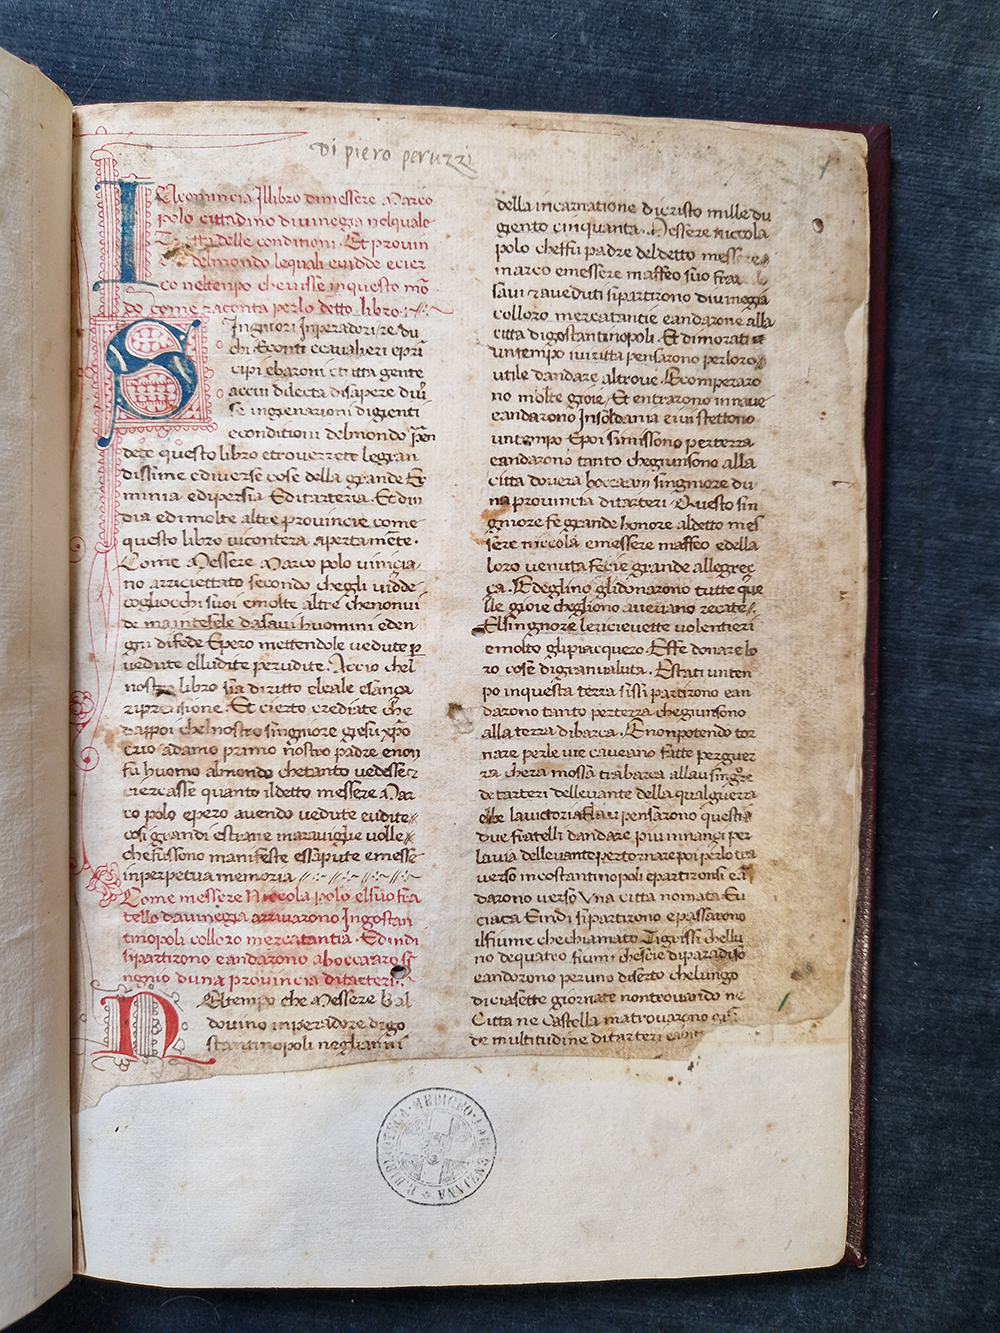 Di piero peruzzi
INcomincia Illibro dimessere Marco
polo cittadino divinegia nelquale
Tratta delle conditioni. Et provin
delmondo lequali evidde ecier
co neltenpo chevisse inquesto mo
do come raconta perlo detto libro
Singniori Inperadori re du
chi Econti ecavalieri epri
cipi ebaroni etutta gente
accui dilecta disapere diu
se ingenerationi digienti
econditioni delmondo pren
dete questo libro etroverrete legran
dissime ediverse cose della grande Er
minia edipersia Editarteria. Et din
dia edimolte altre provincie come
questo libro viconterà apertamete.
Come Messere Marco polo vinizia
no arriciettato secondo chegli vidde
cogliocchi suoi emolte altre chenonvi
de ma intesele dasavi huomini eden
gni difede Epero mettendole vedute p
vedute elludite perudite. Accio chel
nostro libro sia diritto elleale esança
riprensione. Et cierto crediate che
dappoi chelnostro singniore giesu xpo
crio adamo primo nostro padre enon
fu huomo almondo chetanto vedesse
ciercasse quanto ildetto messere Mar
co polo epero avendo vedute eudite
cosi grandi estrane maraviglie volle
chefussono manifeste essapute emesse
inperpetua memoria
Come messere Niccola polo elsuo fra
tello davinegia arrivarono Ingostan
tinopoli colloro mercatantia. Edindi
sipartirono eandarono aboccaro si
ngnio duna provincia ditarteri
Neltempo che Messere Bal
dovino inperadore digo
stantinopoli neglianni
della incarnatione dicristo mille du
giento cinquanta. Messere niccola
polo cheffu padre deldetto messere
marco emessere maffeo suo
savi et aveduti sipartirono divinegia
colloro mercatantie eandarone alla
citta digostantinopoli. Et dimorati
untempo ivi ritta pensarono perloro
utile dandare altrove. Ecomperaro
no molte gioie, Et entrarono innave
eandarono Insoldania eivi stettono
untempo Epoi simissono perterra
eandarono tanto chegiunsono alla
citta dovera boccaam singniore du
na provincia ditarteri. Questo sin
gniore fe grande honore aldetto mes
sere niccola emessere maffeo edella
loro venuta fecie grande allegrez
ça. Edeglino glidonarono tutte que
lle gioie chegliono avevano recate
Elsingniore lericievette volentieri
emolto glipiacquero. Effe donare lo
ro cose digranvaluta. Estati unten
po inquesta terra sissi partirono ean
darono tanto perterra chegiunsono
alla terra dibarca. Enonpotendo tor
nare perle vie caveano fatte perguer
ra chera mossa trabarca allau singre
de tarteri dellevante della qualguerra
ebbe lavictoria pensarono questi
due fratelli dandare piu innanzi per
lavia dellevante pertornare poi perlo tra
verso incostantinopoli epartironsi ean
darono verso Una citta nomata Eu
ciaca Eindi sipartirono epassarono
ilfiume chechiamato Tigrissi chellu
no dequatro fiumi chescie diparadiso
eandorono peruno diserto chelungo
diciasette giornate nontrovando ne
Citta ne Castella matrovarono
de multitudine ditarteri
R. BIBLIOTECA MEDICEO LAURENZIANA